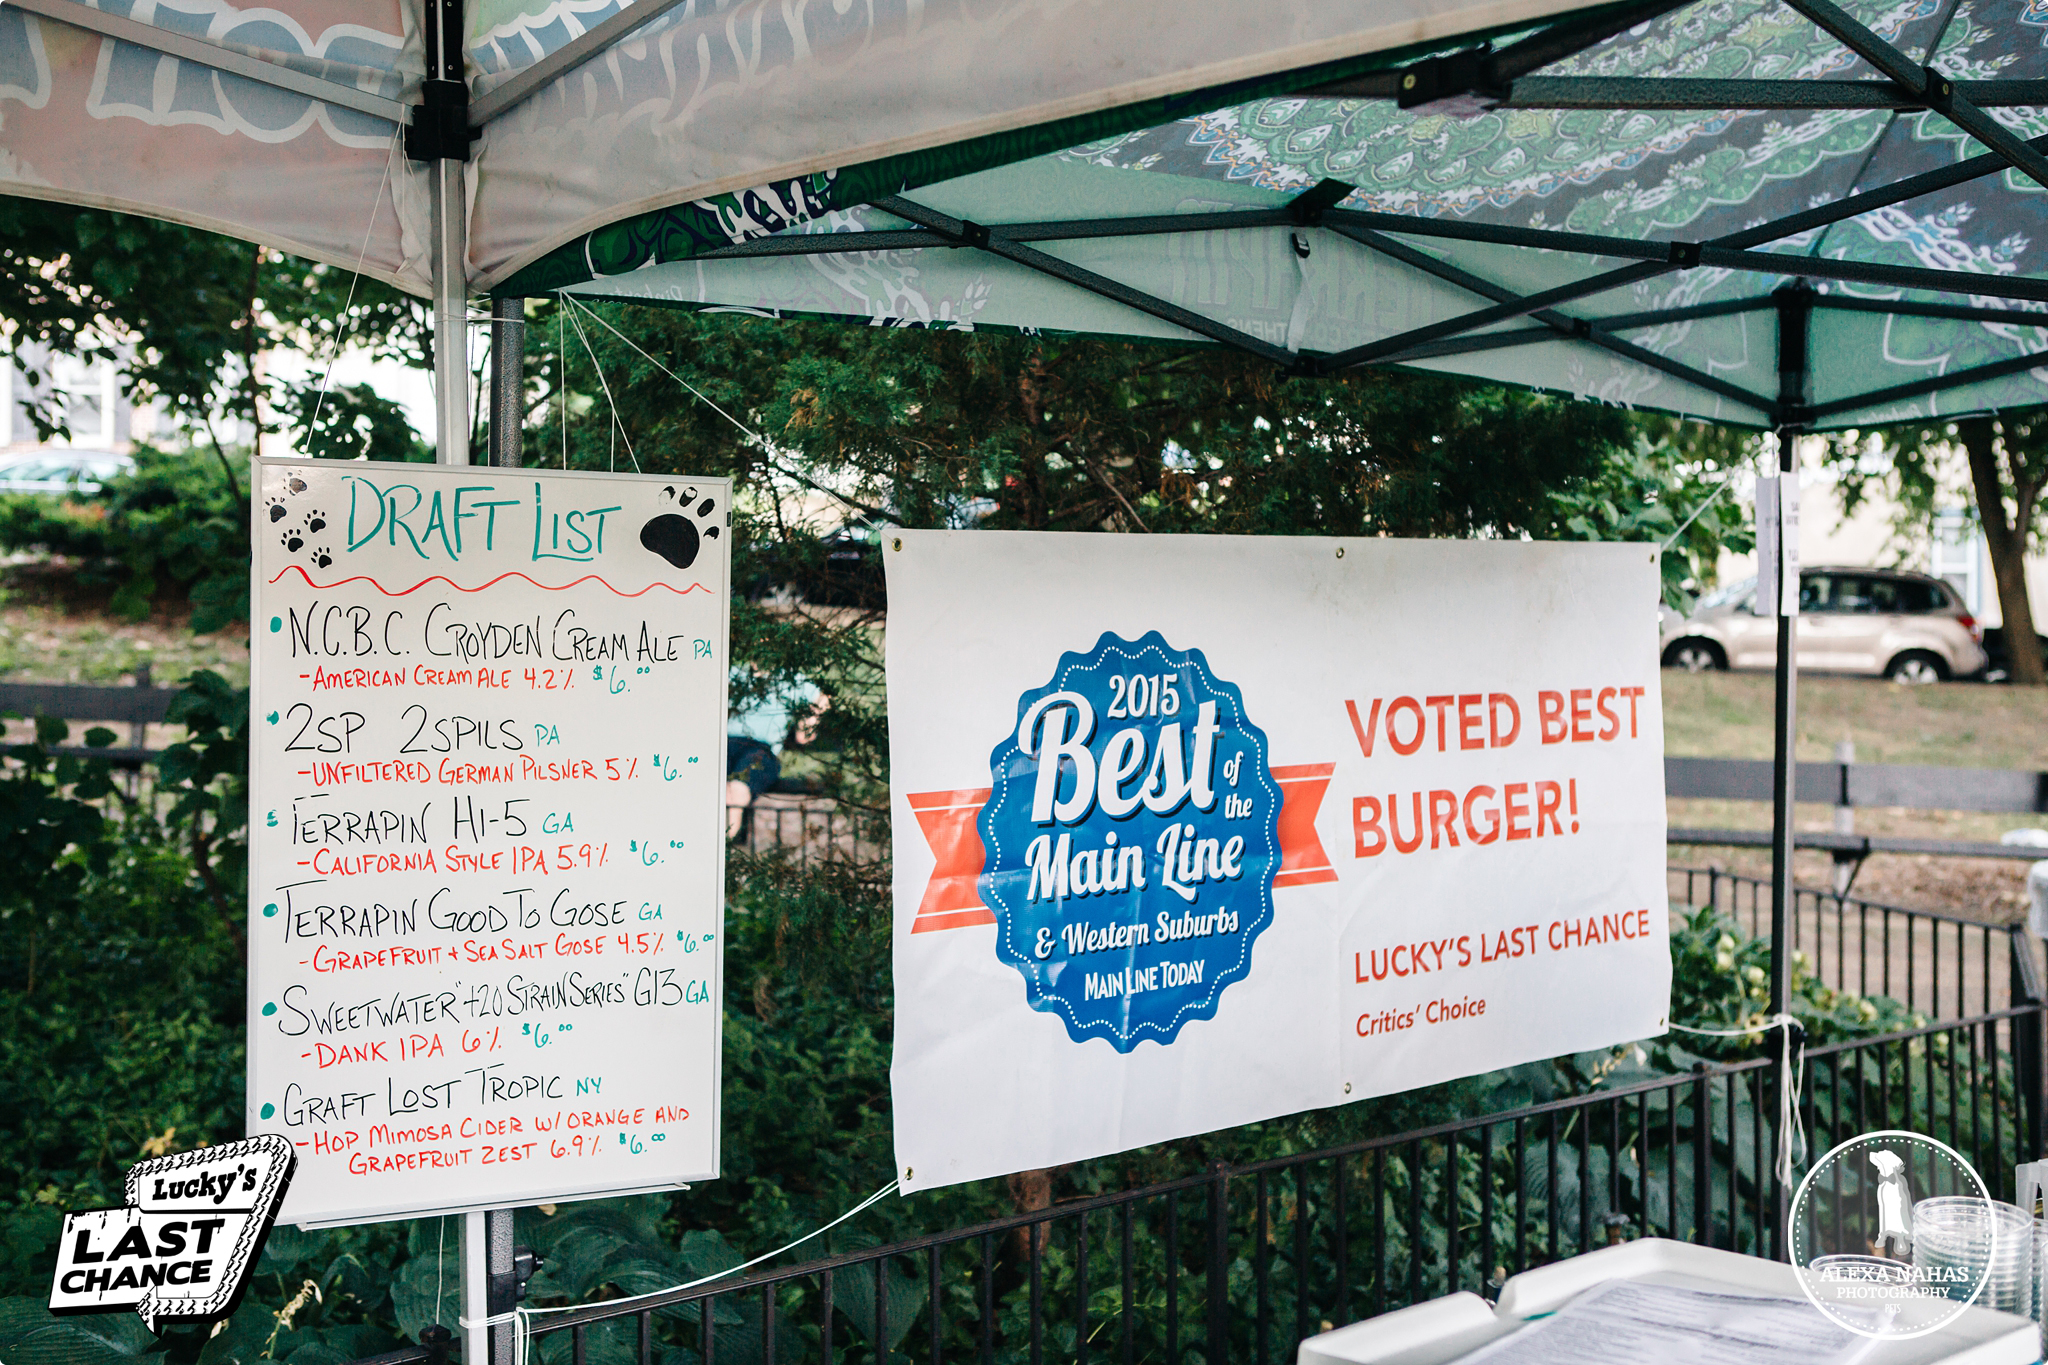 DRAFT LIST
• N.C.B.C. CROYDEN CREAM ALE PA
-AMERICAN CREAM ALE 4.2% $6.00
• 2SP 2SPILS PA
-UNFILTERED GERMAN PILSNER 5% $6.00
• TERRAPIN HI-5 GA
-CALIFORNIA STYLE IPA 5.9% $6.00
• TERRAPIN GOOD TO GOSE GA
-GRAPEFRUIT + SEA SALT GOSE 4.5% $6.00
• SWEETWATER "420 STRAIN SERIES" G13 GA
-DANK IPA 6% $6.00
• GRAFT LOST TROPIC NY
-HOP MIMOSA CIDER W/ ORANGE AND
GRAPEFRUIT ZEST 6.9% $6.00
2015
Best of the
Main Line
& Western Suburbs
MAIN LINE TODAY
VOTED BEST
BURGER!
LUCKY'S LAST CHANCE
Critics' Choice
Lucky's
LAST
CHANCE
ALEXA NAHAS
PHOTOGRAPHY
PETS